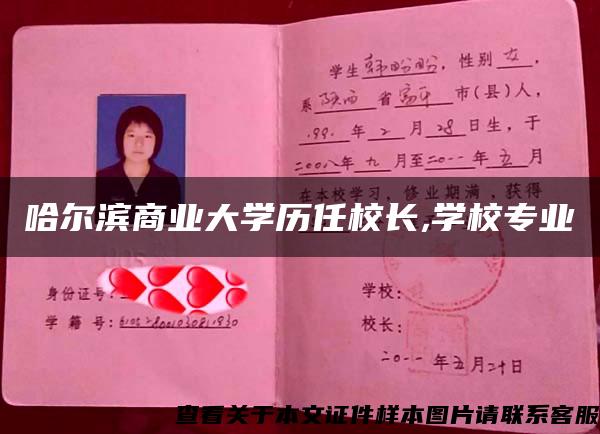 学生韩盼盼，性别女，
系陕西省富平市(县)人，
199 年2月28日生，于
二00八年九月至二0一一年五月
在本校学习，修业期满，获得
哈尔滨商业大学历任校长,学校专业
身份证号：
学籍号：
学校：
校长：
二0一一年五月二十日
查看关于本文证件样本图片请联系客服